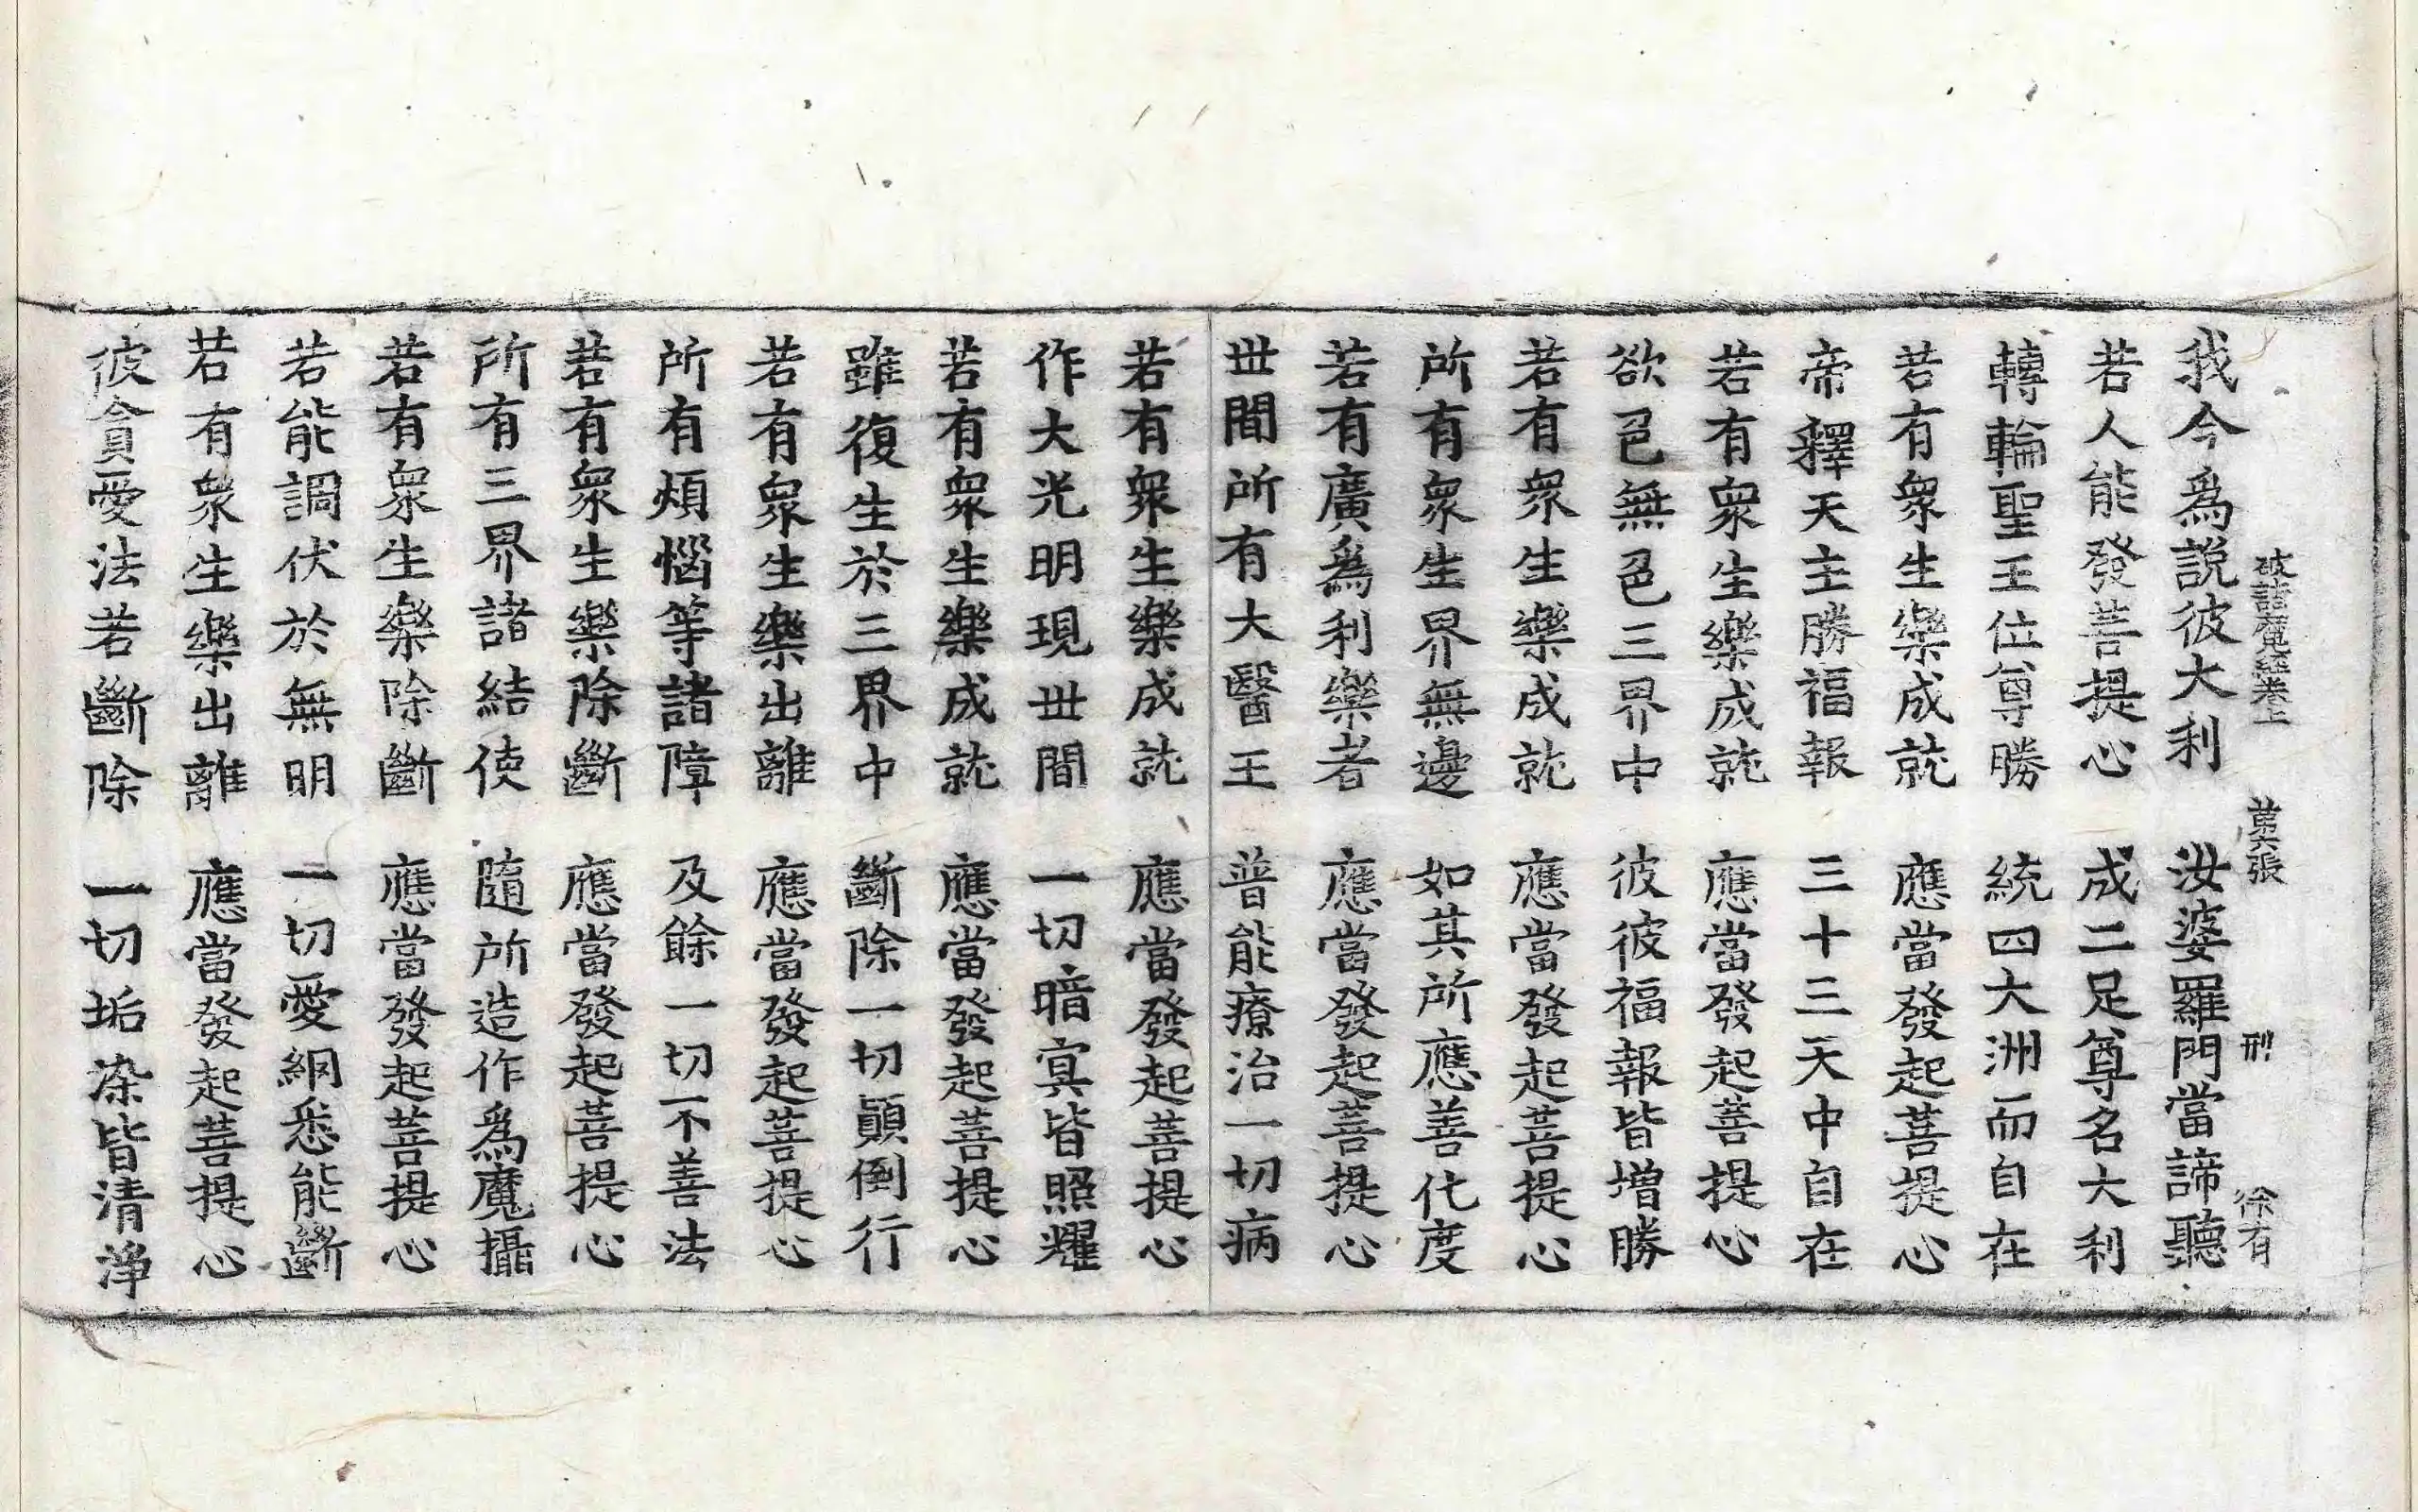 我今爲說彼大利　汝婆羅門當諦聽
破諸魔經卷上　第六張　刑　徐有
若人能發菩提心　成二足尊名大利
轉輪聖王位尊勝　統四大洲而自在
若有衆生樂成就　應當發起菩提心
帝釋天主勝福報　三十三天中自在
若有衆生樂成就　應當發起菩提心
欲色無色三界中　彼彼福報皆增勝
若有衆生樂成就　應當發起菩提心
所有衆生界無邊　如其所應善化度
若有廣爲利樂者　應當發起菩提心
世間所有大醫王　普能療治一切病
若有衆生樂成就　應當發起菩提心
作大光明現世間　一切暗冥皆照耀
若有衆生樂成就　應當發起菩提心
雖復生於三界中　斷除一切顚倒行
若有衆生樂出離　應當發起菩提心
所有煩惱等諸障　及餘一切不善法
若有衆生樂除斷　應當發起菩提心
所有三界諸結使　隨所造作爲魔攝
若有衆生樂除斷　應當發起菩提心
若能調伏於無明　一切愛網悉能斷
若有衆生樂出離　應當發起菩提心
彼貪愛法若斷除　一切垢染皆清淨